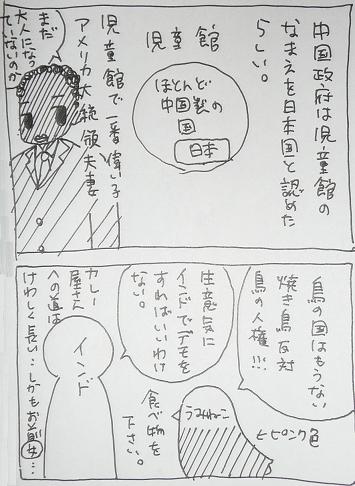 中国政府は児童館の
なまえを日本国と認めた
らしい。
児童館
ほとんど
中国製の
国
日本
児童館で一番偉い子
アメリカ大統領夫妻
まだ
大人になっ
ていないのか
鳥の国はもうない
焼き鳥反対
鳥の人権!!!
生意気に
インドでデモを
すればいいわけ
ない。
うみねこ
ピンク色
食べ物を
下さい。
インド
カレー
屋さん
への道は
けわしく長い…しかもお前